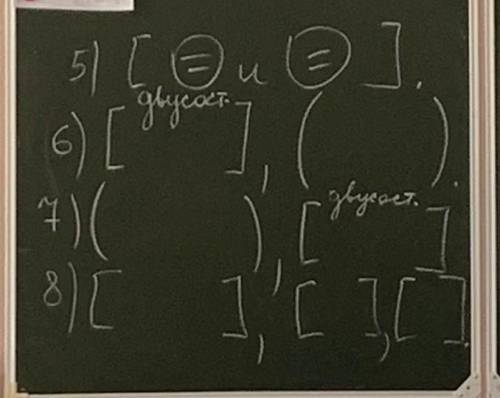 5) [ (=) и (=) ].
двусост.
6) [ ], ( ).
двусост.
7) ( ), [ ]
8) [ ], [ ], [ ].